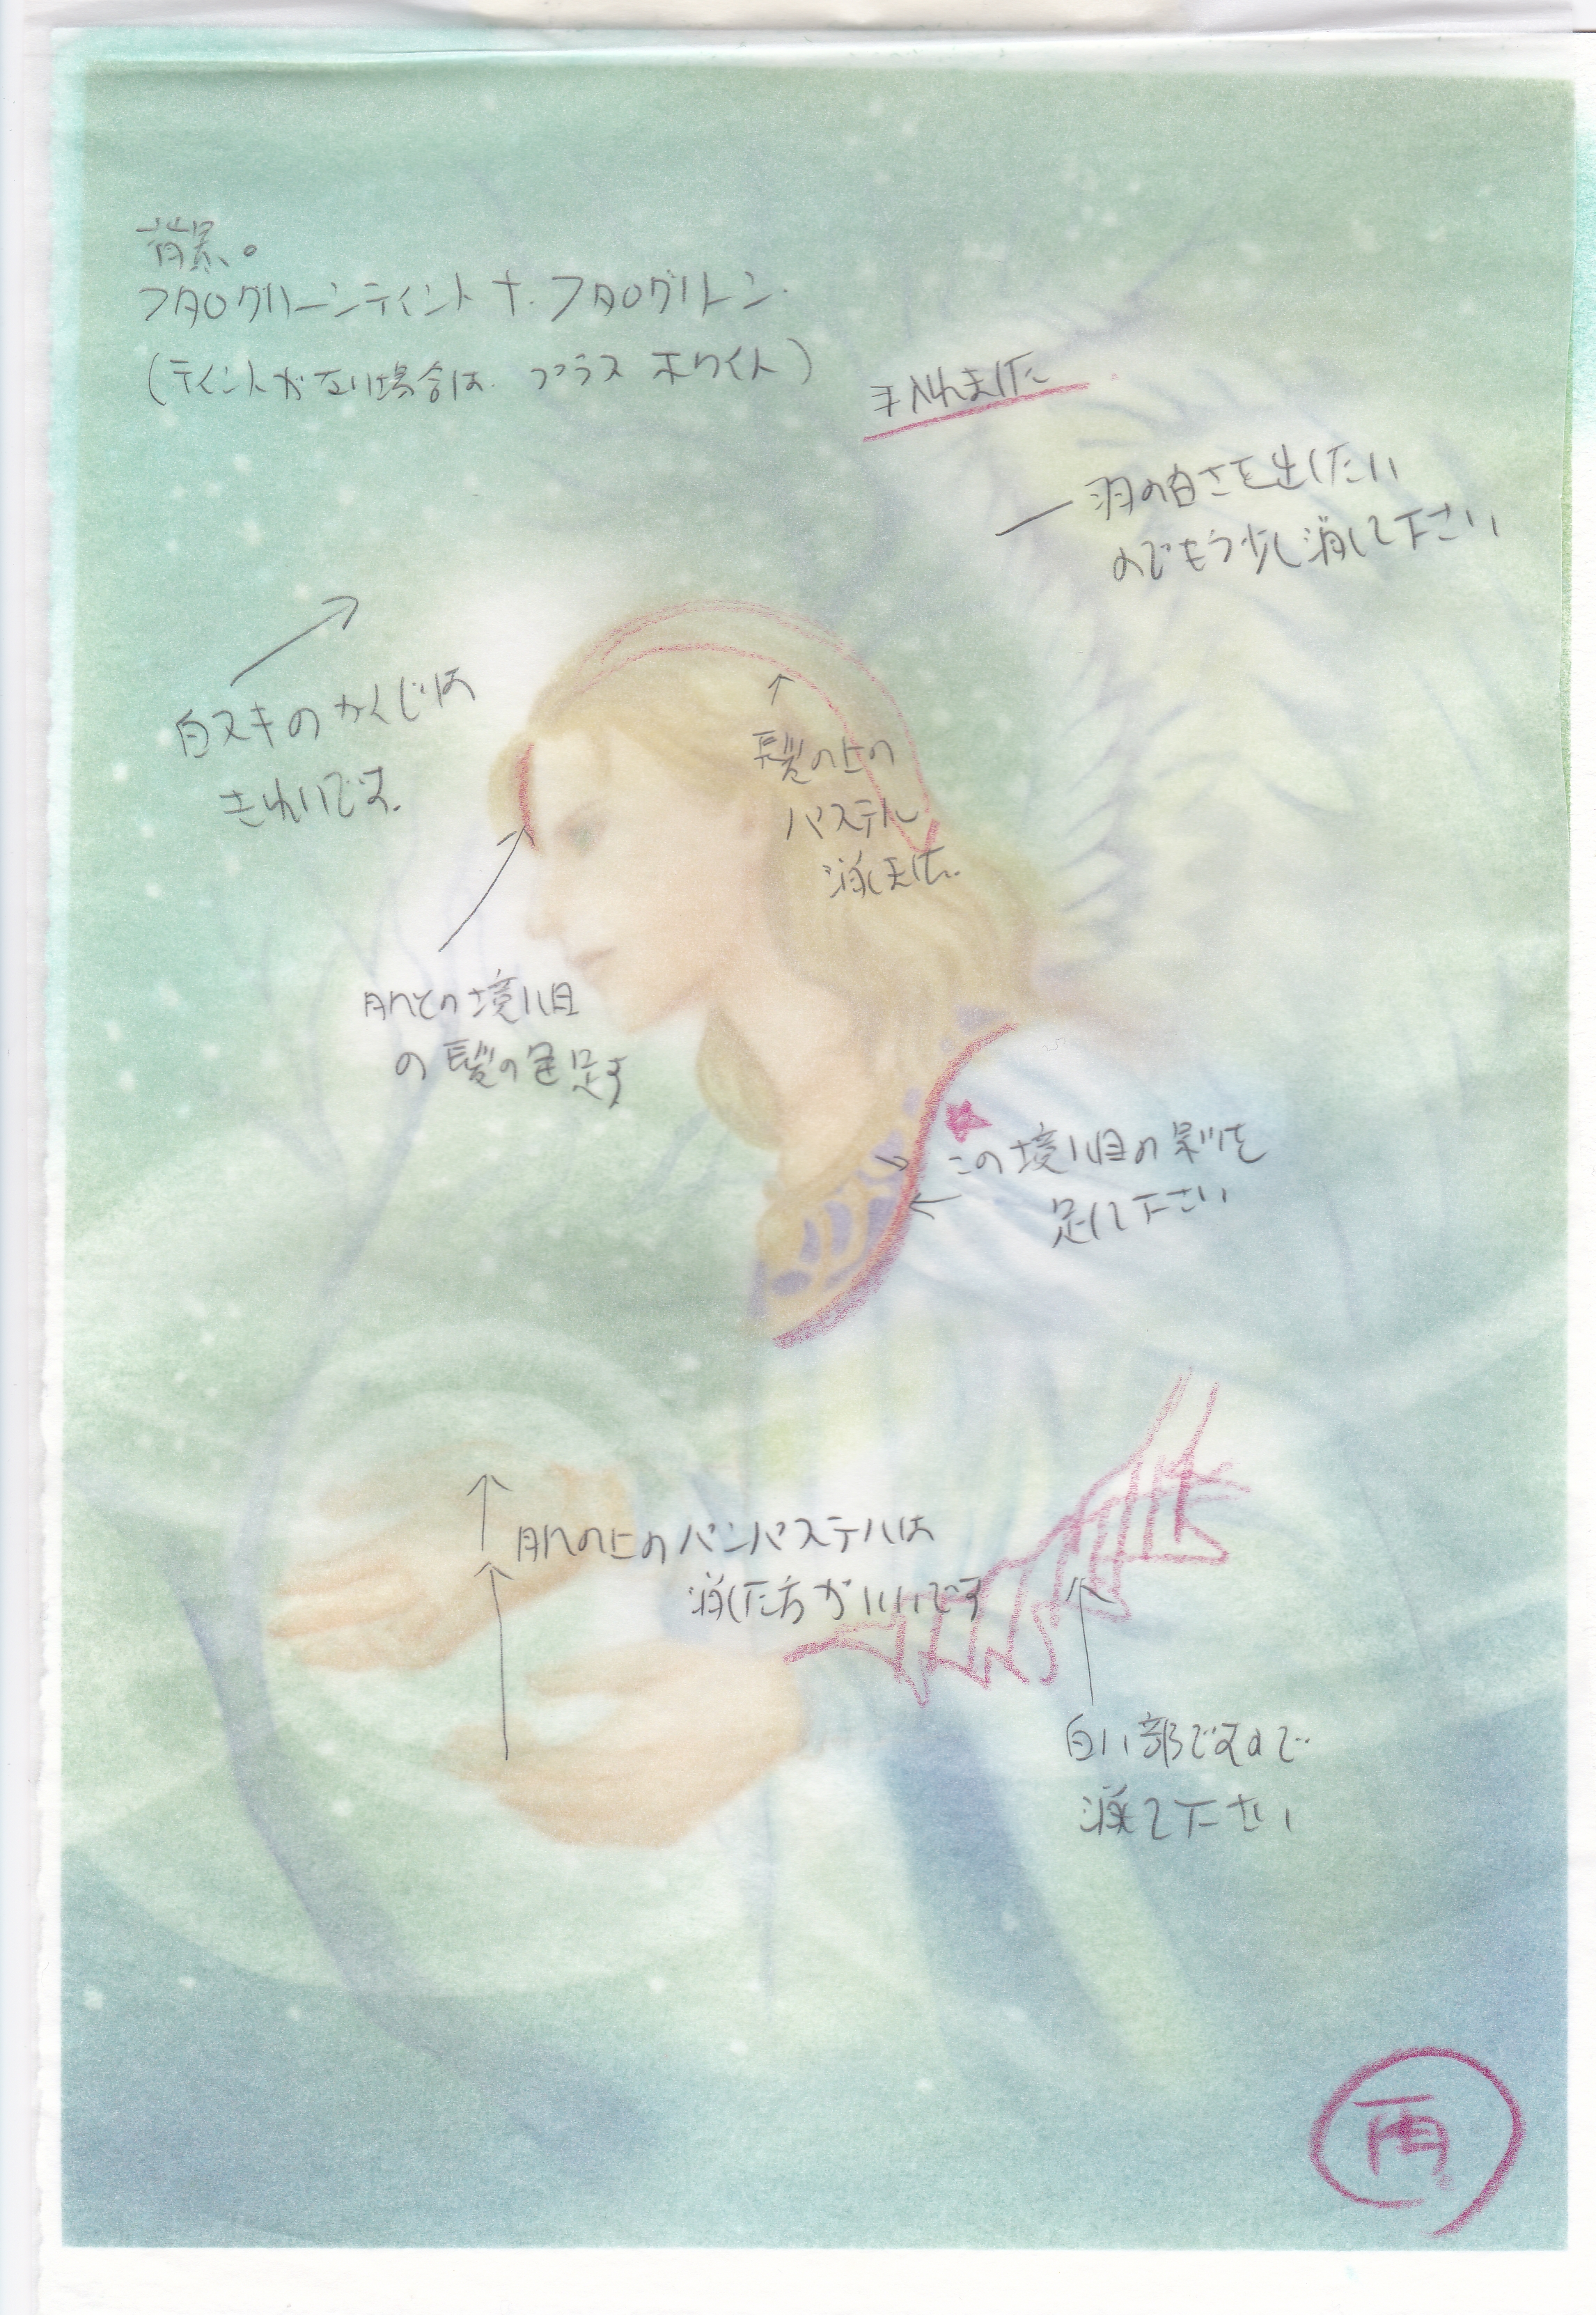 背景。
フタログリーンティント + フタログリーン
(ティントがない場合は プラス ホワイト)
手入れました
羽の白さを出したい
のでもう少し消して下さい
白ヌキのかくじは
きれいです。
髪の上の
パステル
消しました。
肌との境い目
の髪の色足す
この境い目の影を
足して下さい
肌の上のパンパステルは
消した方がいいです
白い部ですので
消して下さい
再